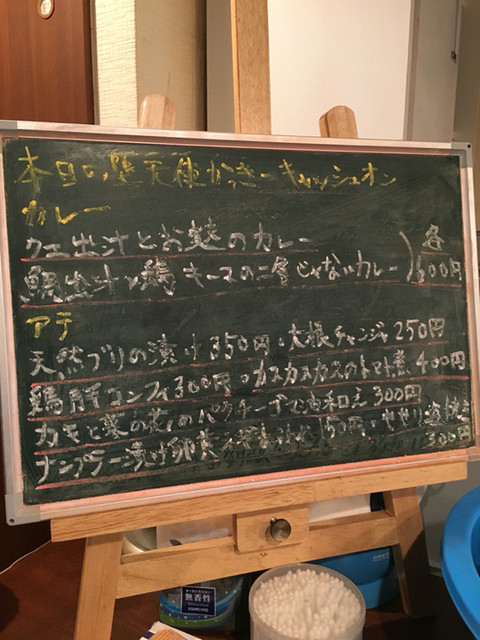 本日の堕天種かっきーキャッシュオン
カレー
クエ出汁とお麩のカレー
鯛出汁 鶏キーマの二層じゃないカレー
各
500円
アテ
天然ブリの漬け350円・大根チャンジャ250円
鶏肝コンフィ300円・カスカスカスのトマト煮400円
カモと菜の花のペペ 和え300円
ナンプラー漬け卵黄 150円・せせり 焼き
300円
無香性
KINCHO